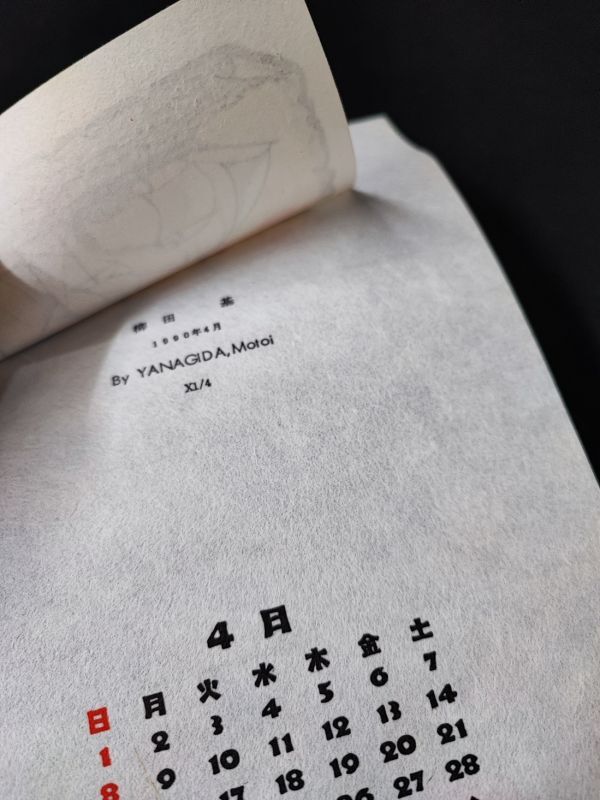 柳田 基
1990年4月
By YANAGIDA, Motoi
XI/4
4月
日 月 火 水 木 金 土
1 2 3 4 5 6 7
8 9 10 11 12 13 14
17 18 19 20 21
26 27 28